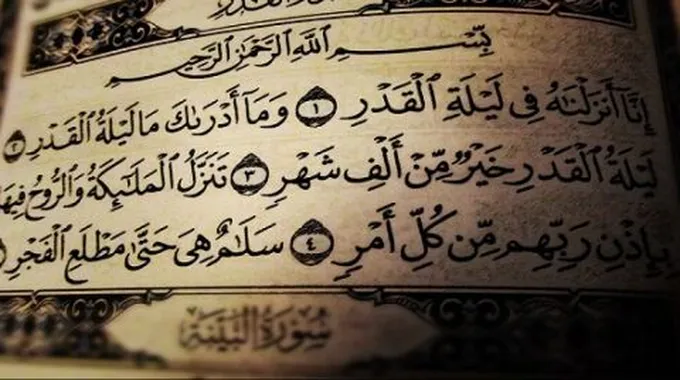 القدر
بِسْمِ ٱللَّهِ ٱلرَّحْمَٰنِ ٱلرَّحِيمِ
إِنَّآ أَنزَلْنَٰهُ فِى لَيْلَةِ ٱلْقَدْرِ ١ وَمَآ أَدْرَىٰكَ مَا لَيْلَةُ ٱلْقَدْرِ ٢
لَيْلَةُ ٱلْقَدْرِ خَيْرٌ مِّنْ أَلْفِ شَهْرٍ ٣ تَنَزَّلُ ٱلْمَلَٰٓئِكَةُ وَٱلرُّوحُ فِيهَا
بِإِذْنِ رَبِّهِم مِّن كُلِّ أَمْرٍ ٤ سَلَٰمٌ هِىَ حَتَّىٰ مَطْلَعِ ٱلْفَجْرِ
سُورَةُ البَيِّنَةِ